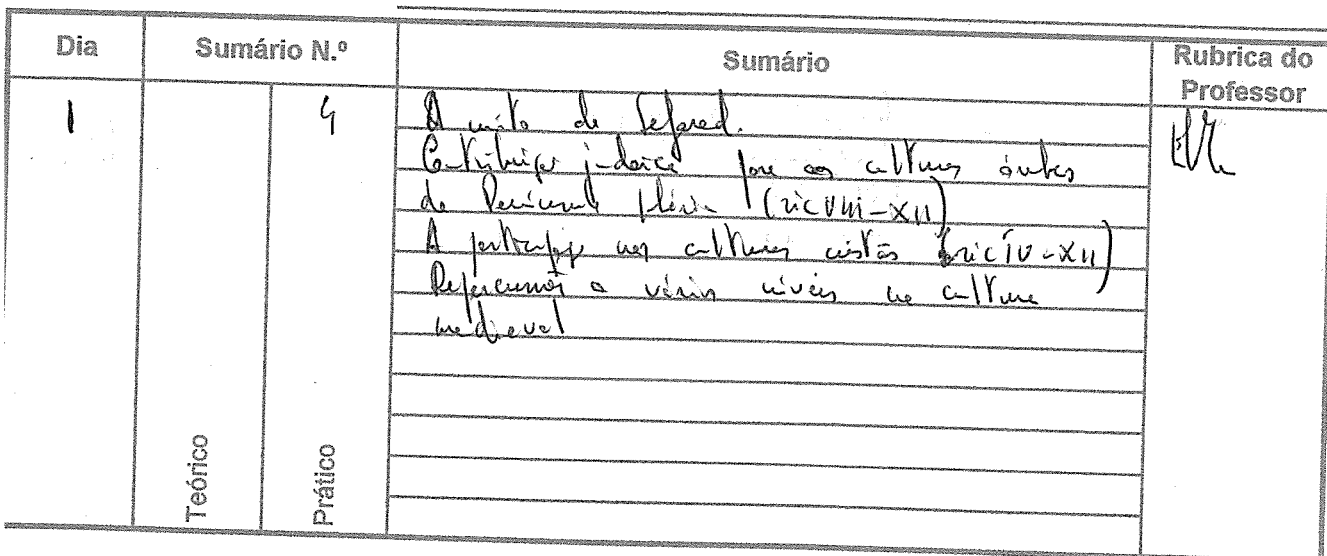 Dia Sumário N.º Sumário Rubrica do Professor
1 4 O mito de Sefarad.
Contribuição judaica para as culturas árabes
da Península Ibérica (séc VIII-XII)
A participação nas culturas cristãs (séc IV-XII)
Repercussões a vários níveis na cultura
medieval
Teórico Prático